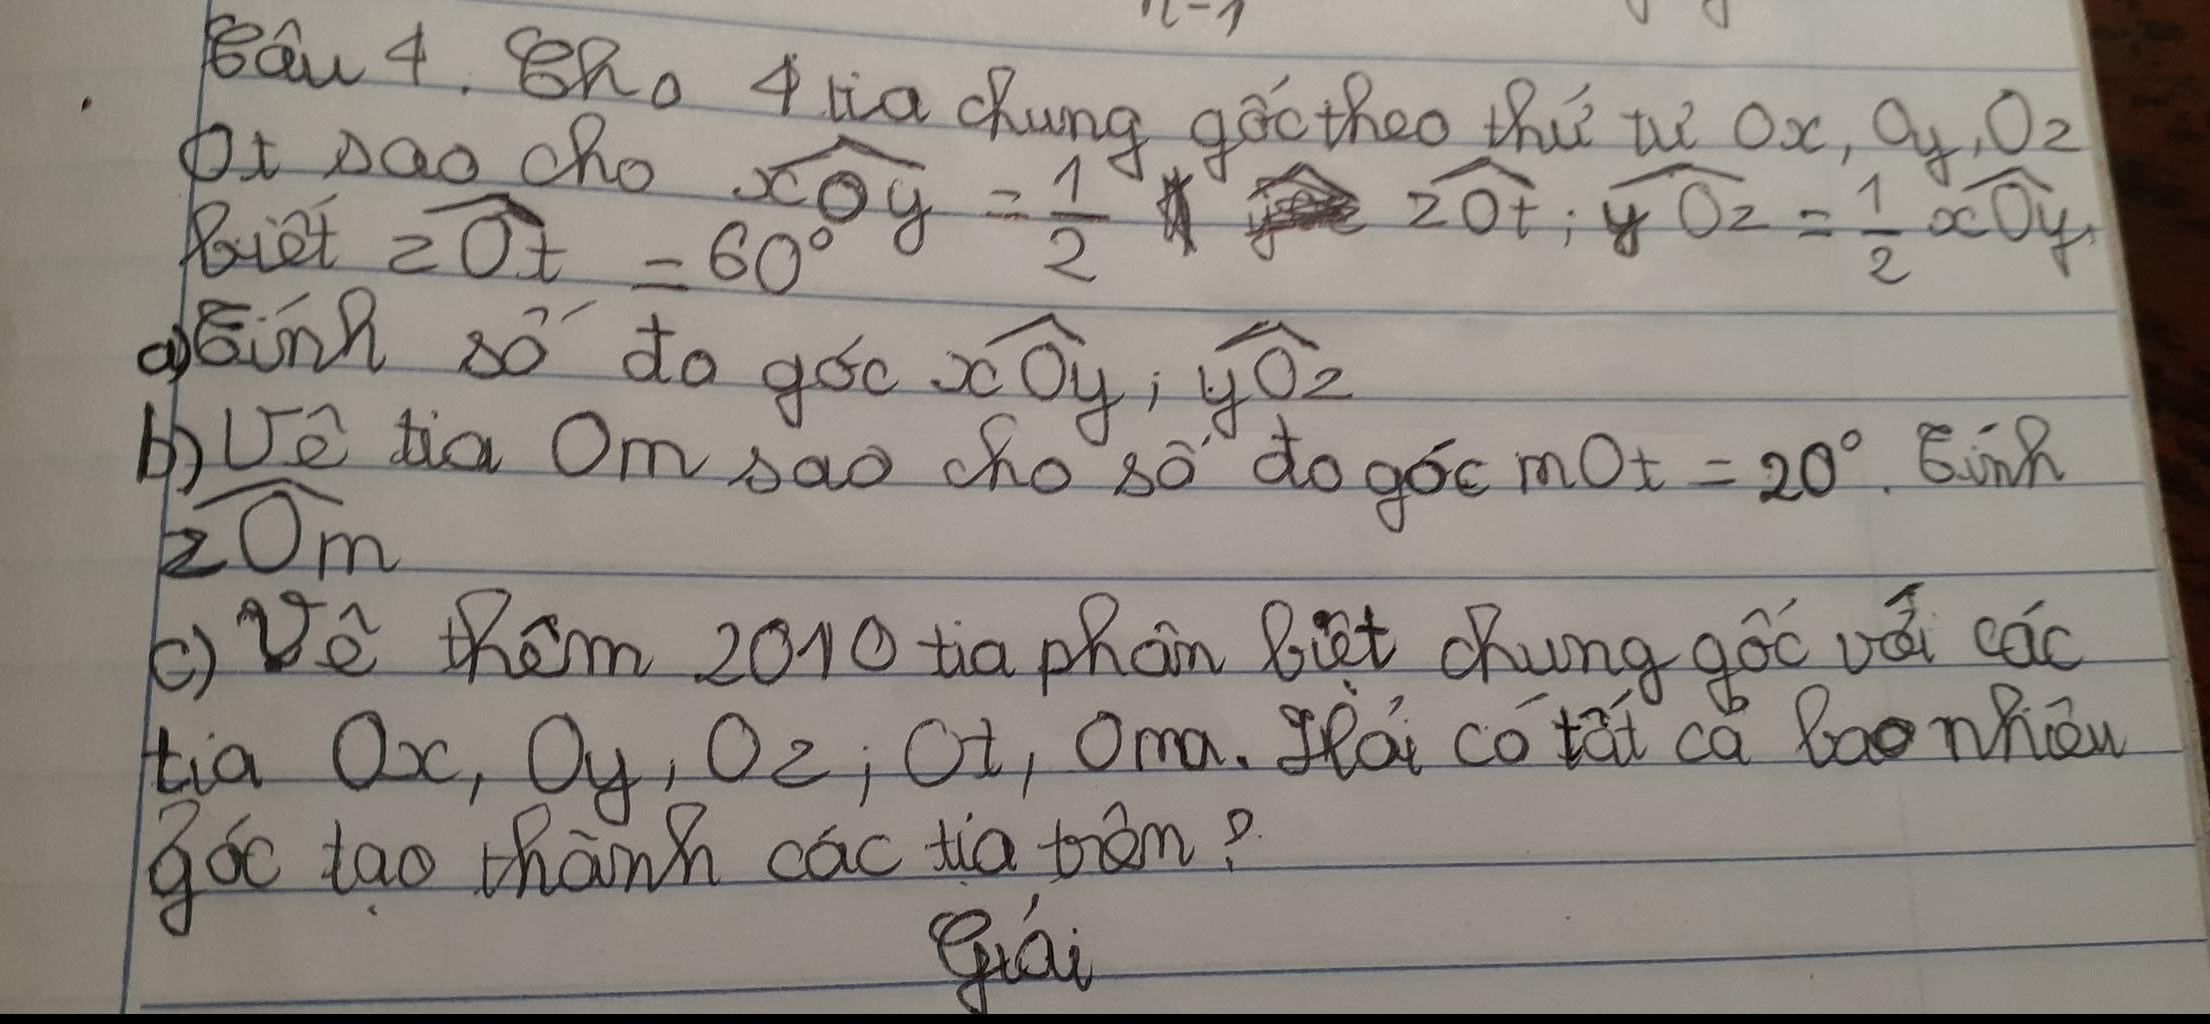 n-1
Câu 4. Cho 4 tia chung gốc theo thứ tư Ox, Oy, Oz
Ot sao cho xOy = 1/2 zOt; yOz = 1/2 xOy,
biết zOt = 60°
a) Tính số đo góc xOy; yOz
b) Vẽ tia Om sao cho số đo góc mOt = 20°. Tính
zOm
c) Vẽ thêm 2010 tia phân biệt chung gốc với các
tia Ox, Oy, Oz; Ot, Om. Hỏi có tất cả bao nhiêu
góc tạo thành các tia trên?
Giải